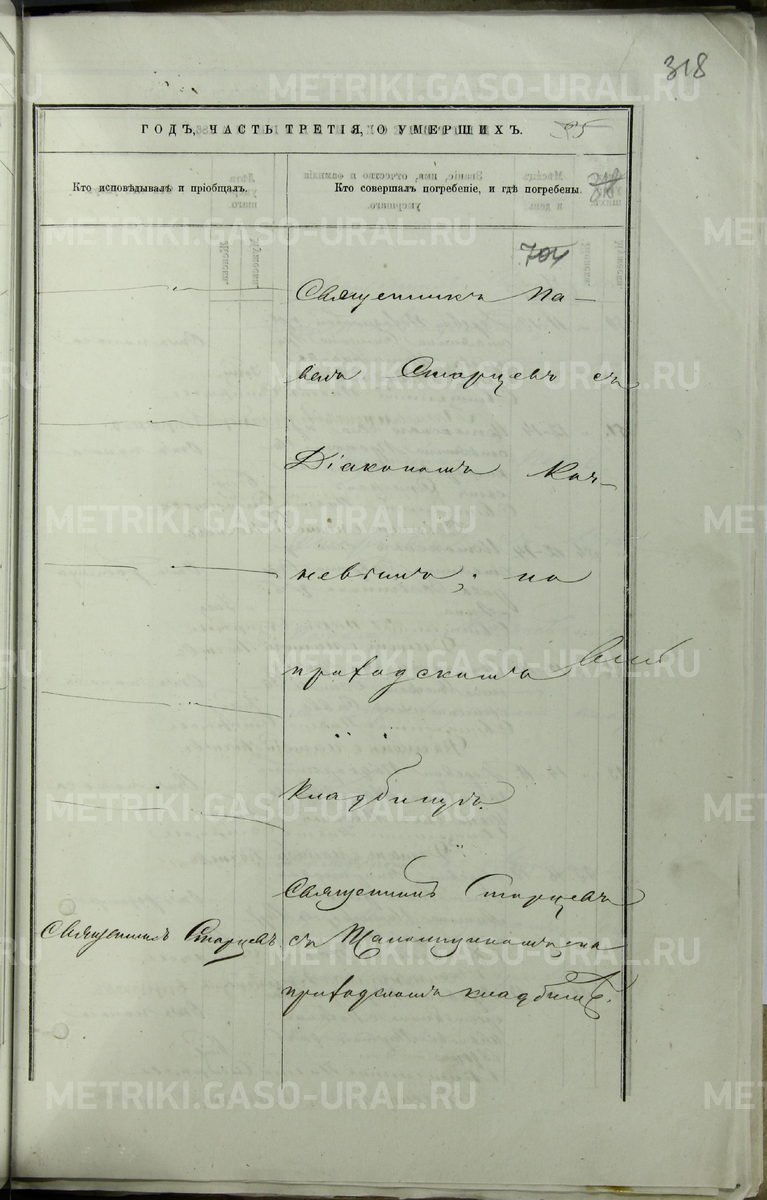 318
ГОДЪ, ЧАСТЬ ТРЕТІЯ, О УМЕРШИХЪ.
Кто исповѣдывалъ и пріобщалъ.
Кто совершалъ погребеніе, и гдѣ погребены.
704
Священникъ Па-
велъ Старцевъ съ
Діакономъ
на
приходскомъ
кладбищѣ.
Священникъ Старцевъ
Священникъ Старцевъ
съ на
приходскомъ кладбищѣ.
METRIKI.GASO-URAL.RU